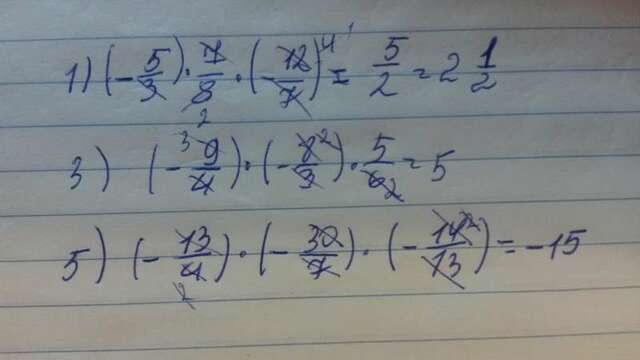 1) (-5/3) · 7/8 · (-12/7) 4 1 = 5/2 = 2 1/2
2
3) (- 3 9/4) · (-8 2/3) · 5/6 2 = 5
5) (-13/4) · (-30/7) · (-14 2/13) = -15
2